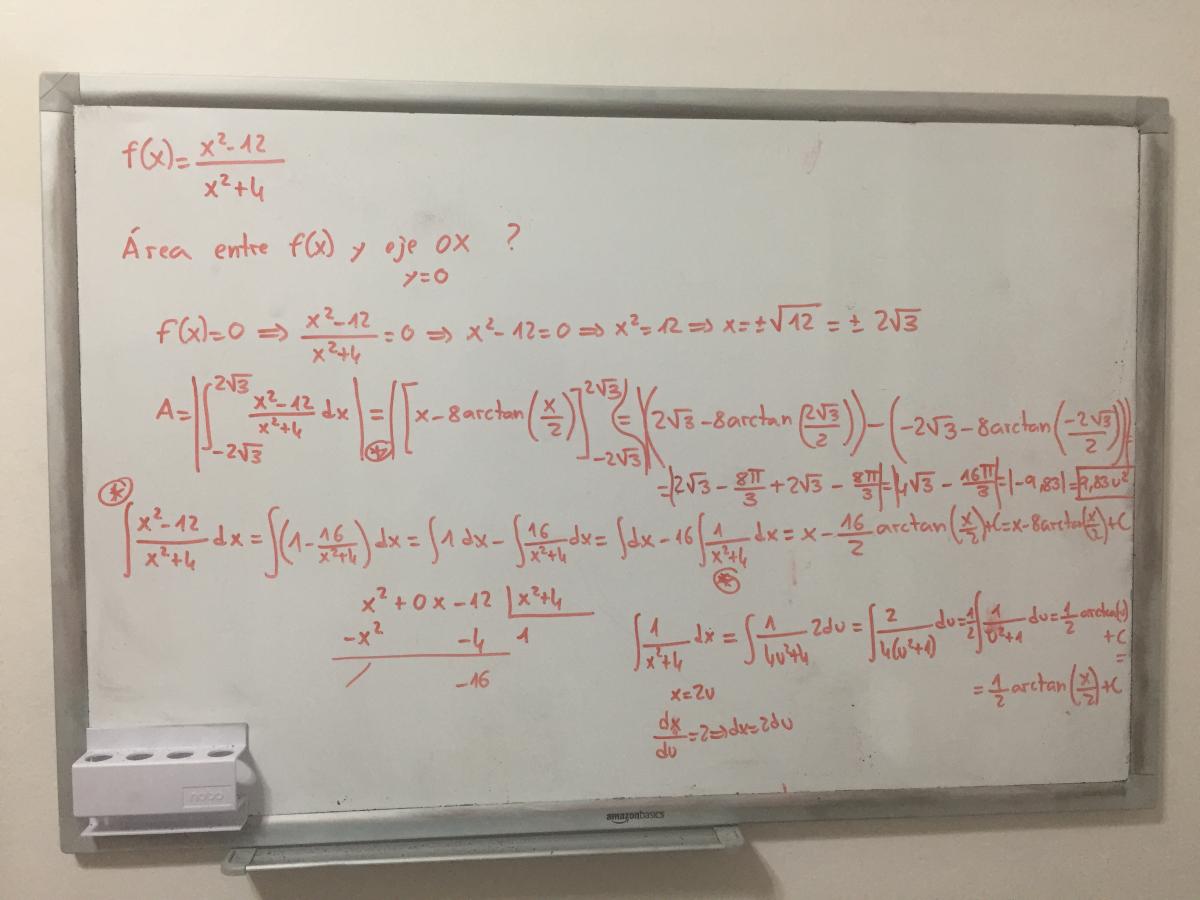 f(x)= (x²-12)/(x²+4)
Área entre f(x) y eje OX ?
y=0
f(x)=0 ⇒ (x²-12)/(x²+4)=0 ⇒ x²-12=0 ⇒ x²=12 ⇒ x=±√12 = ± 2√3
A=|∫_{-2√3}^{2√3} (x²-12)/(x²+4) dx| =(*) |[x-8arctan(x/2)]_{-2√3}^{2√3}| = |(2√3-8arctan(2√3/2))-(-2√3-8arctan(-2√3/2))|=
=|2√3-8π/3+2√3-8π/3|=|4√3-16π/3|=|-9,83|=9,83u²
(*)
∫(x²-12)/(x²+4) dx = ∫(1-16/(x²+4))dx = ∫1 dx-∫16/(x²+4) dx= ∫dx-16∫1/(x²+4) dx= x-16/2 arctan(x/2)+C=x-8arctan(x/2)+C
(*)
x²+0x-12 |x²+4
-x² -4 1
/ -16
∫1/(x²+4) dx = ∫1/(4u²+4) 2du = ∫2/(4(u²+1)) du=1/2∫1/(u²+1) du=1/2 arctan(u)
+C
=
x=2u
=1/2 arctan(x/2)+C
dx/du=2⇒dx=2du
nobo
amazonbasics